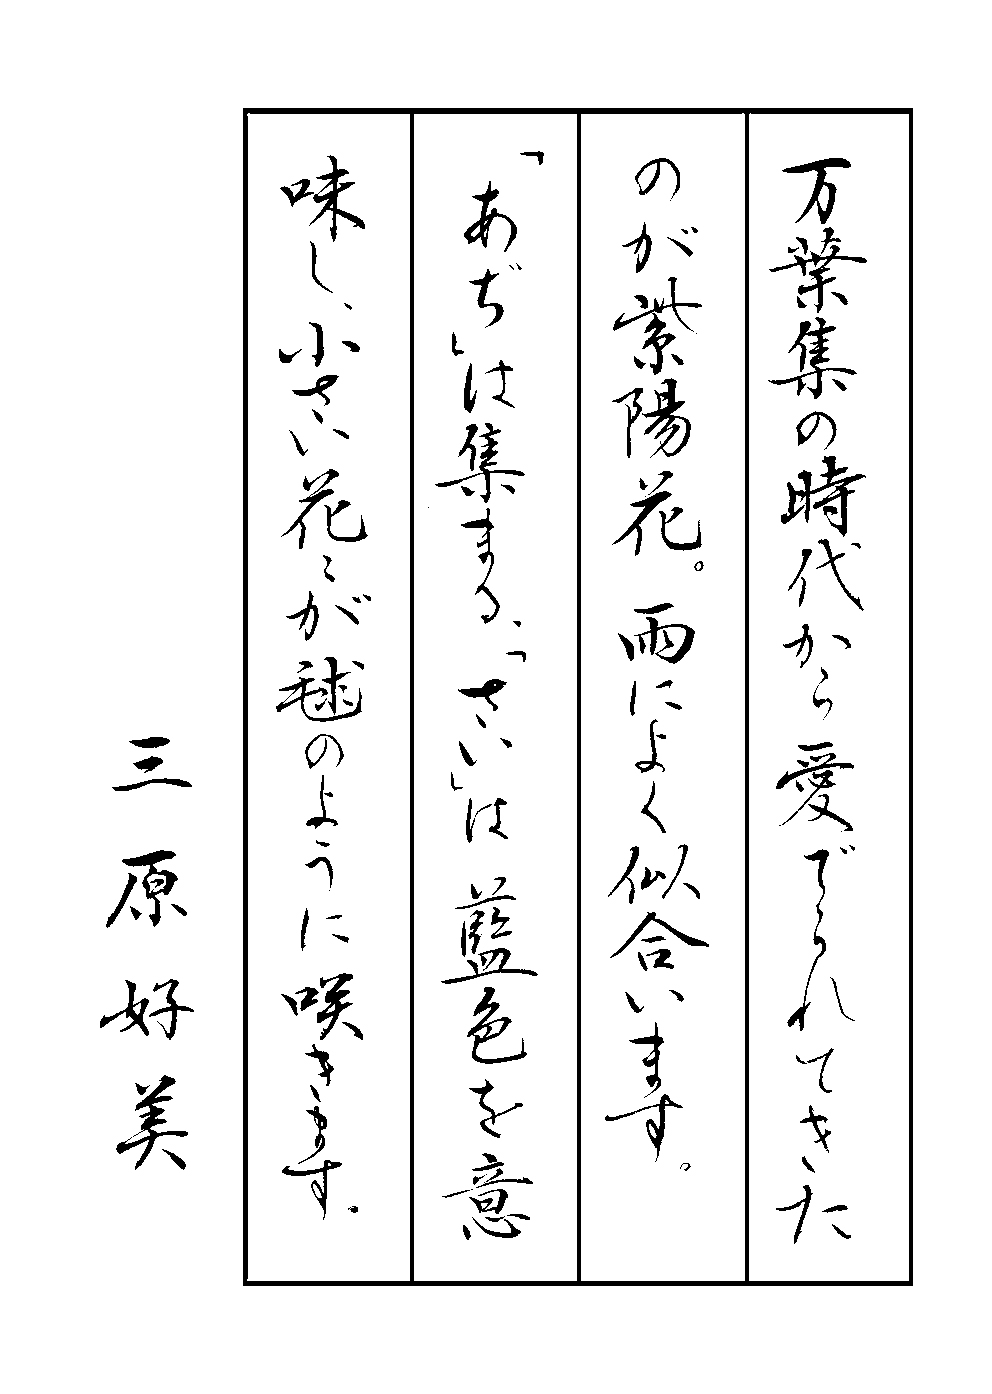 万葉集の時代から愛でられてきた
のが紫陽花。雨によく似合います。
「あぢ」は集まる、「さい」は藍色を意
味し、小さい花々が毬のように咲きます。
三原好美